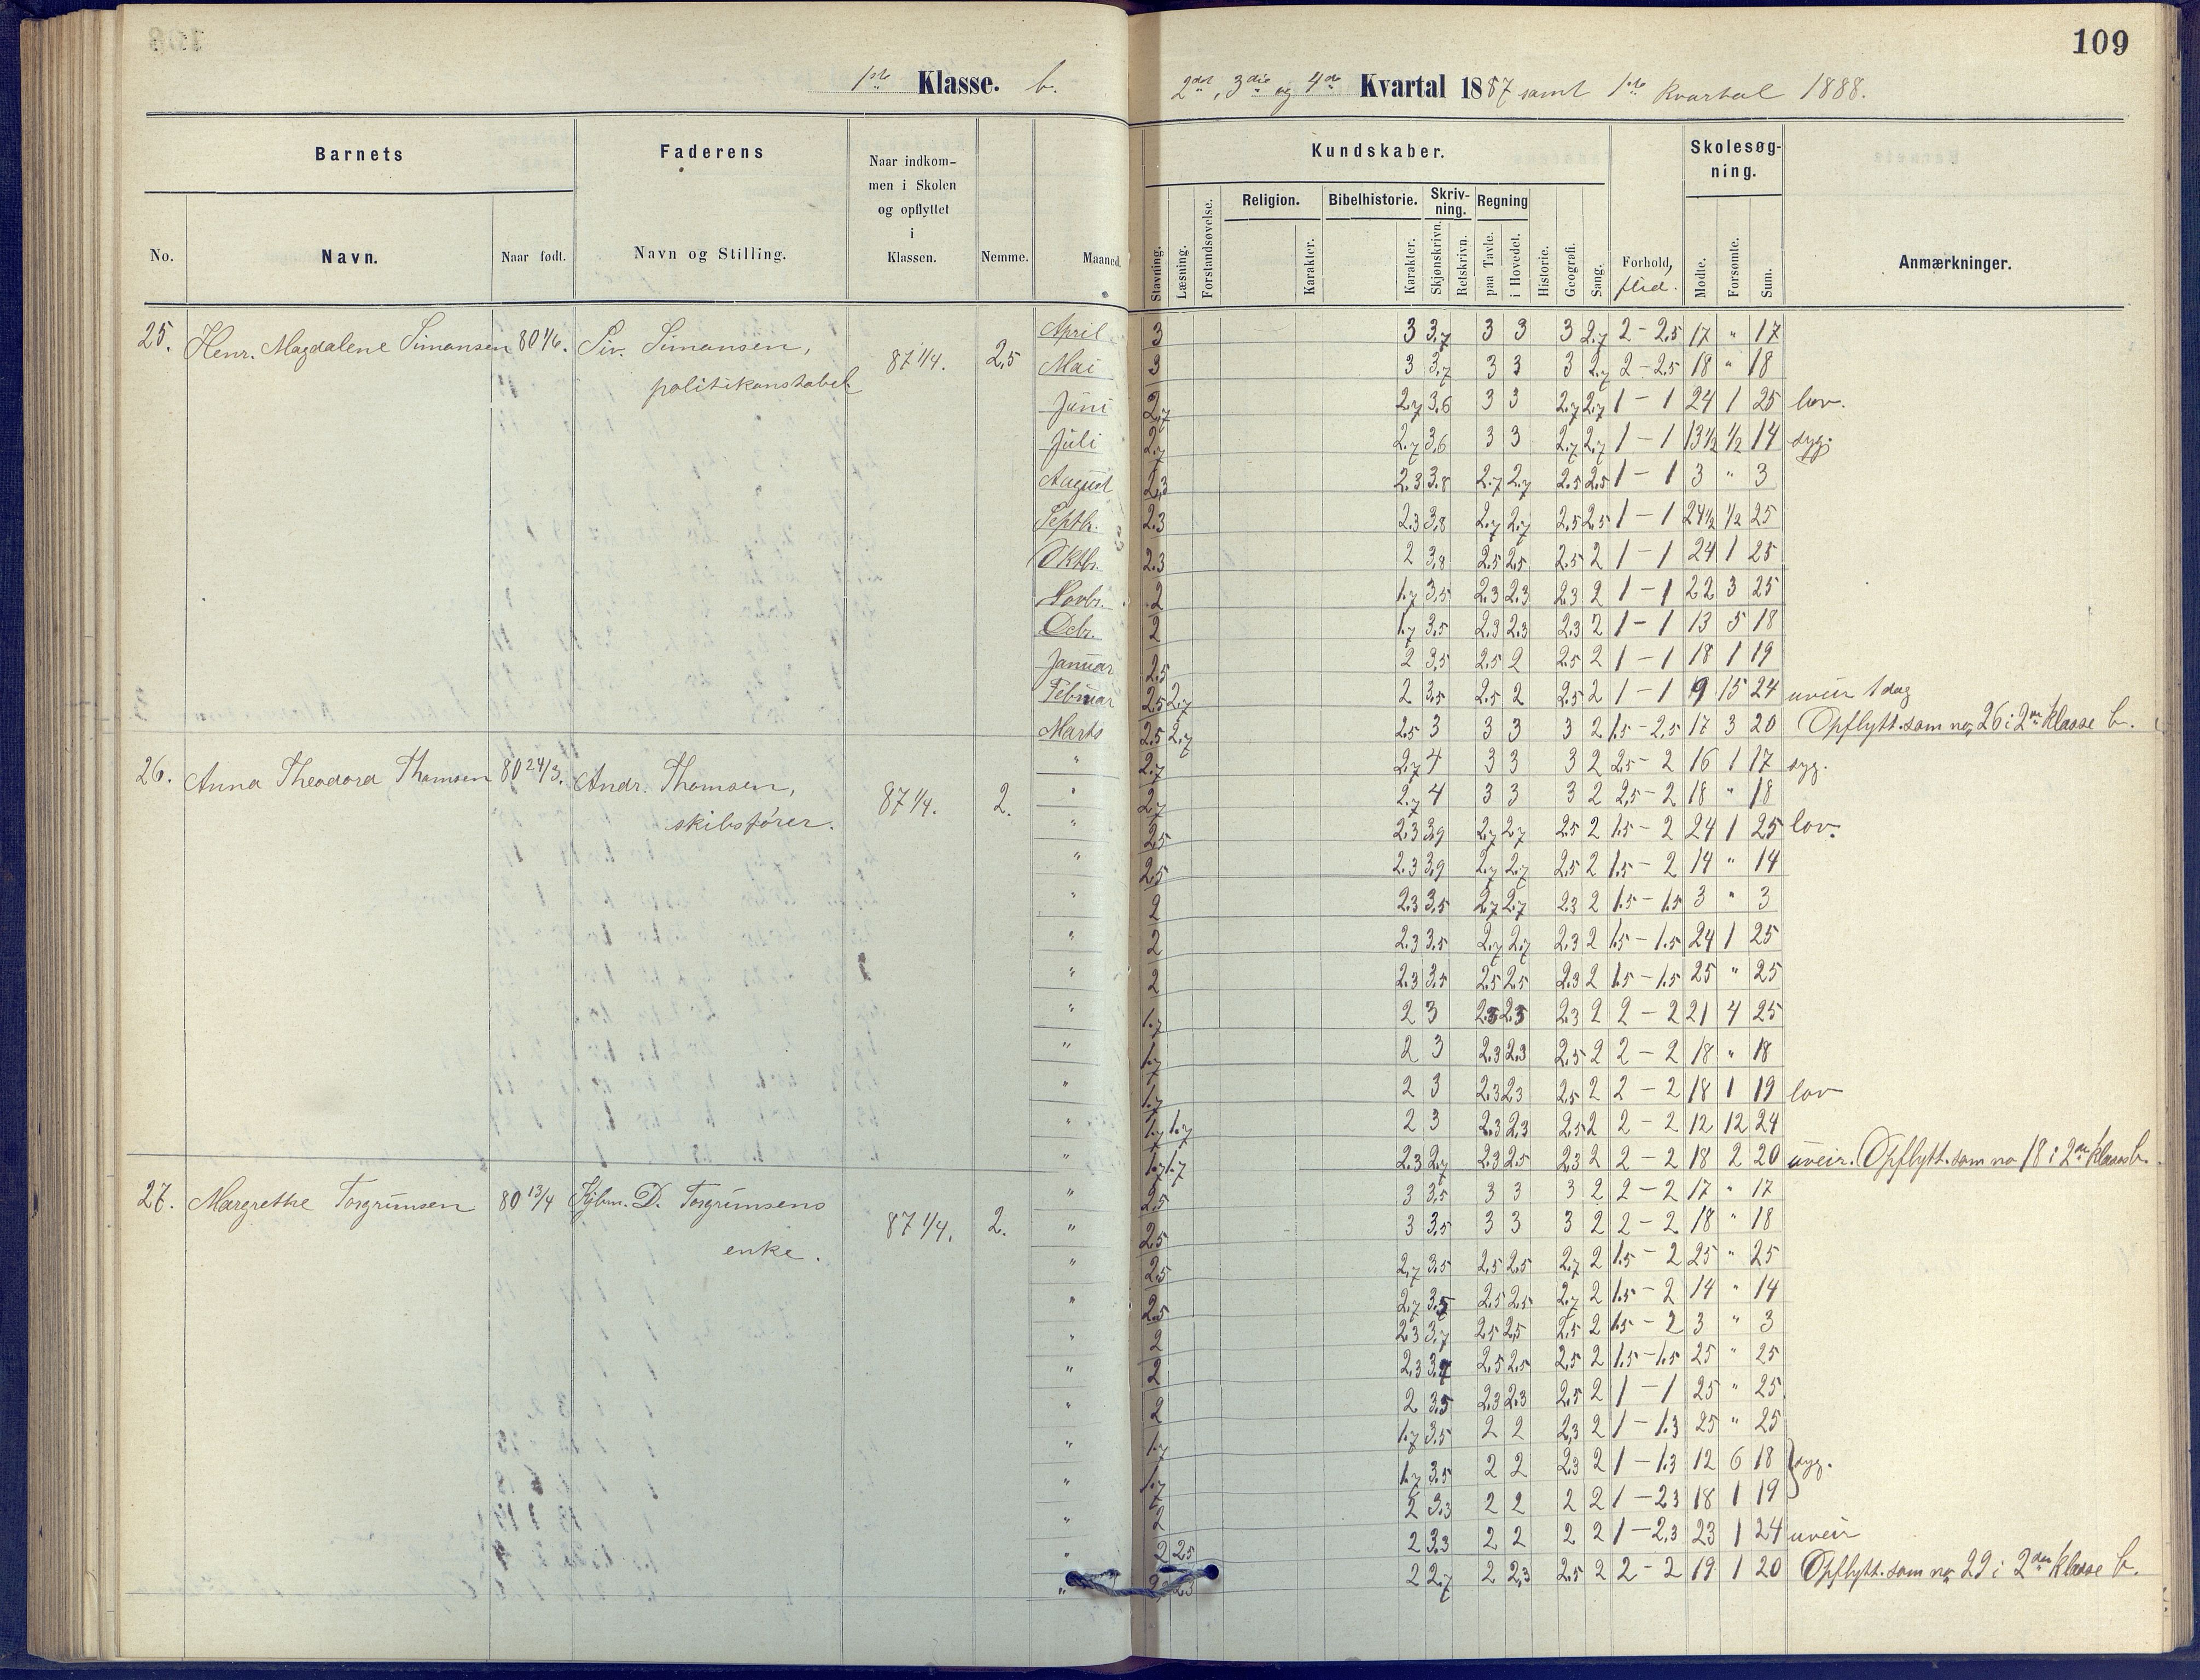 109
1ste Klasse. b.
2det, 3die og 4de Kvartal 1887 samt 1ste Kvartal 1888.
Barnets
Faderens
Naar indkom-
men i Skolen
og opflyttet
i
Klassen.
Nemme.
Maaned.
No.
Navn.
Naar født.
Navn og Stilling.
Kundskaber.
Skolesøg-
ning.
Stavning.
Læsning.
Forstandsøvelse.
Religion.
Karakter.
Bibelhistorie.
Karakter.
Skriv-
ning.
Skjønskrivn.
Retskrivn.
Regning
paa Tavle.
i Hovedet.
Historie.
Geografi.
Sang.
Forhold,
flid.
Mødte.
Forsømte.
Sum.
Anmærkninger.
25. Henr. Magdalene Simonsen 80 1/6. Siv. Simonsen,
politikonstabel 87 1/4. 2,5
April 3 3 3,7 3 3 3 2,7 2 - 2,5 17 " 17
Mai 3 3 3,7 3 3 3 2,7 2 - 2,5 18 " 18
Juni 2,7 2,7 3,6 3 3 2,7 2,7 1 - 1 24 1 25 lov.
Juli 2,7 2,7 3,6 3 3 2,7 2,7 1 - 1 13 1/2 1/2 14 syg.
August 2,3 2,3 3,8 2,7 2,7 2,5 2,5 1 - 1 3 " 3
Septbr. 2,3 2,3 3,8 2,7 2,7 2,5 2,5 1 - 1 24 1/2 1/2 25
Oktbr. 2,3 2 3,8 2,5 2,5 2,5 2 1 - 1 24 1 25
Novbr. 2 1,7 3,5 2,3 2,3 2,3 2 1 - 1 22 3 25
Decbr. 2 1,7 3,5 2,3 2,3 2,3 2 1 - 1 13 5 18
Januar 2,5 2 3,5 2,5 2 2,5 2 1 - 1 18 1 19
Februar 2,5 2,7 2 3,5 2,5 2 2,5 2 1 - 1 9 15 24 uveir 1 dag
Marts 2,5 2,7 2,5 3 3 3 3 2 1,5 - 2,5 17 3 20 Opflytt. som no 26 i 2den klasse b.
26. Anna Theodora Thomsen 80 24/3. Andr. Thomsen,
skibsfører. 87 1/4. 2.
" 2,7 2,7 4 3 3 3 2 2,5 - 2 16 1 17 syg.
" 2,7 2,7 4 3 3 3 2 2,5 - 2 18 " 18
" 2,5 2,3 3,9 2,7 2,7 2,5 2 1,5 - 2 24 1 25 lov.
" 2,5 2,3 3,9 2,7 2,7 2,5 2 1,5 - 2 14 " 14
" 2 2,3 3,5 2,7 2,7 2,3 2 1,5 - 1,5 3 " 3
" 2 2,3 3,5 2,7 2,7 2,3 2 1,5 - 1,5 24 1 25
" 2 2,3 3,5 2,5 2,5 2,3 2 1,5 - 1,5 25 " 25
" 1,7 2 3 2,3 2,3 2,3 2 2 - 2 21 4 25
" 1,7 2 3 2,3 2,3 2,5 2 2 - 2 18 " 18
" 1,7 2 3 2,3 2,3 2,5 2 2 - 2 18 1 19 lov
" 1,7 1,7 2 3 2,3 2,3 2,5 2 2 - 2 12 12 24
" 1,7 1,7 2,3 2,7 2,3 2,5 2,3 2 2 - 2 18 2 20 uveir. Opflytt. som no 18 i 2den klasse b.
27. Margrethe Torgrimsen 80 13/4 Kjbm. D. Torgrimsens
enke. 87 1/4. 2.
" 2,5 3 3,5 3 3 3 2 2 - 2 17 " 17
" 2,5 3 3,5 3 3 3 2 2 - 2 18 " 18
" 2,5 2,7 3,5 2,5 2,5 2,7 2 1,5 - 2 25 " 25
" 2,5 2,7 3,5 2,5 2,5 2,7 2 1,5 - 2 14 " 14
" 2 2,3 3,7 2,5 2,5 2,5 2 1,5 - 2 3 " 3
" 2 2,3 3,7 2,5 2,5 2,5 2 1,5 - 1,5 25 " 25
" 2 2 3,5 2,3 2,3 2,5 2 1 - 1 25 " 25
" 1,7 1,7 3,5 2 2 2,3 2 1 - 1,3 25 " 25
" 1,7 1,7 3,5 2 2 2,3 2 1 - 1,3 12 6 18 syg.
" 2 2 3,3 2 2 2 2 1 - 2,3 18 1 19
" 2 2,5 2 3,3 2 2 2 2 1 - 2,3 23 1 24 uveir
" 2 2,3 2 2,7 2 2,3 2,5 2 2 - 2 19 1 20 Opflytt. som no 29 i 2den klasse b.